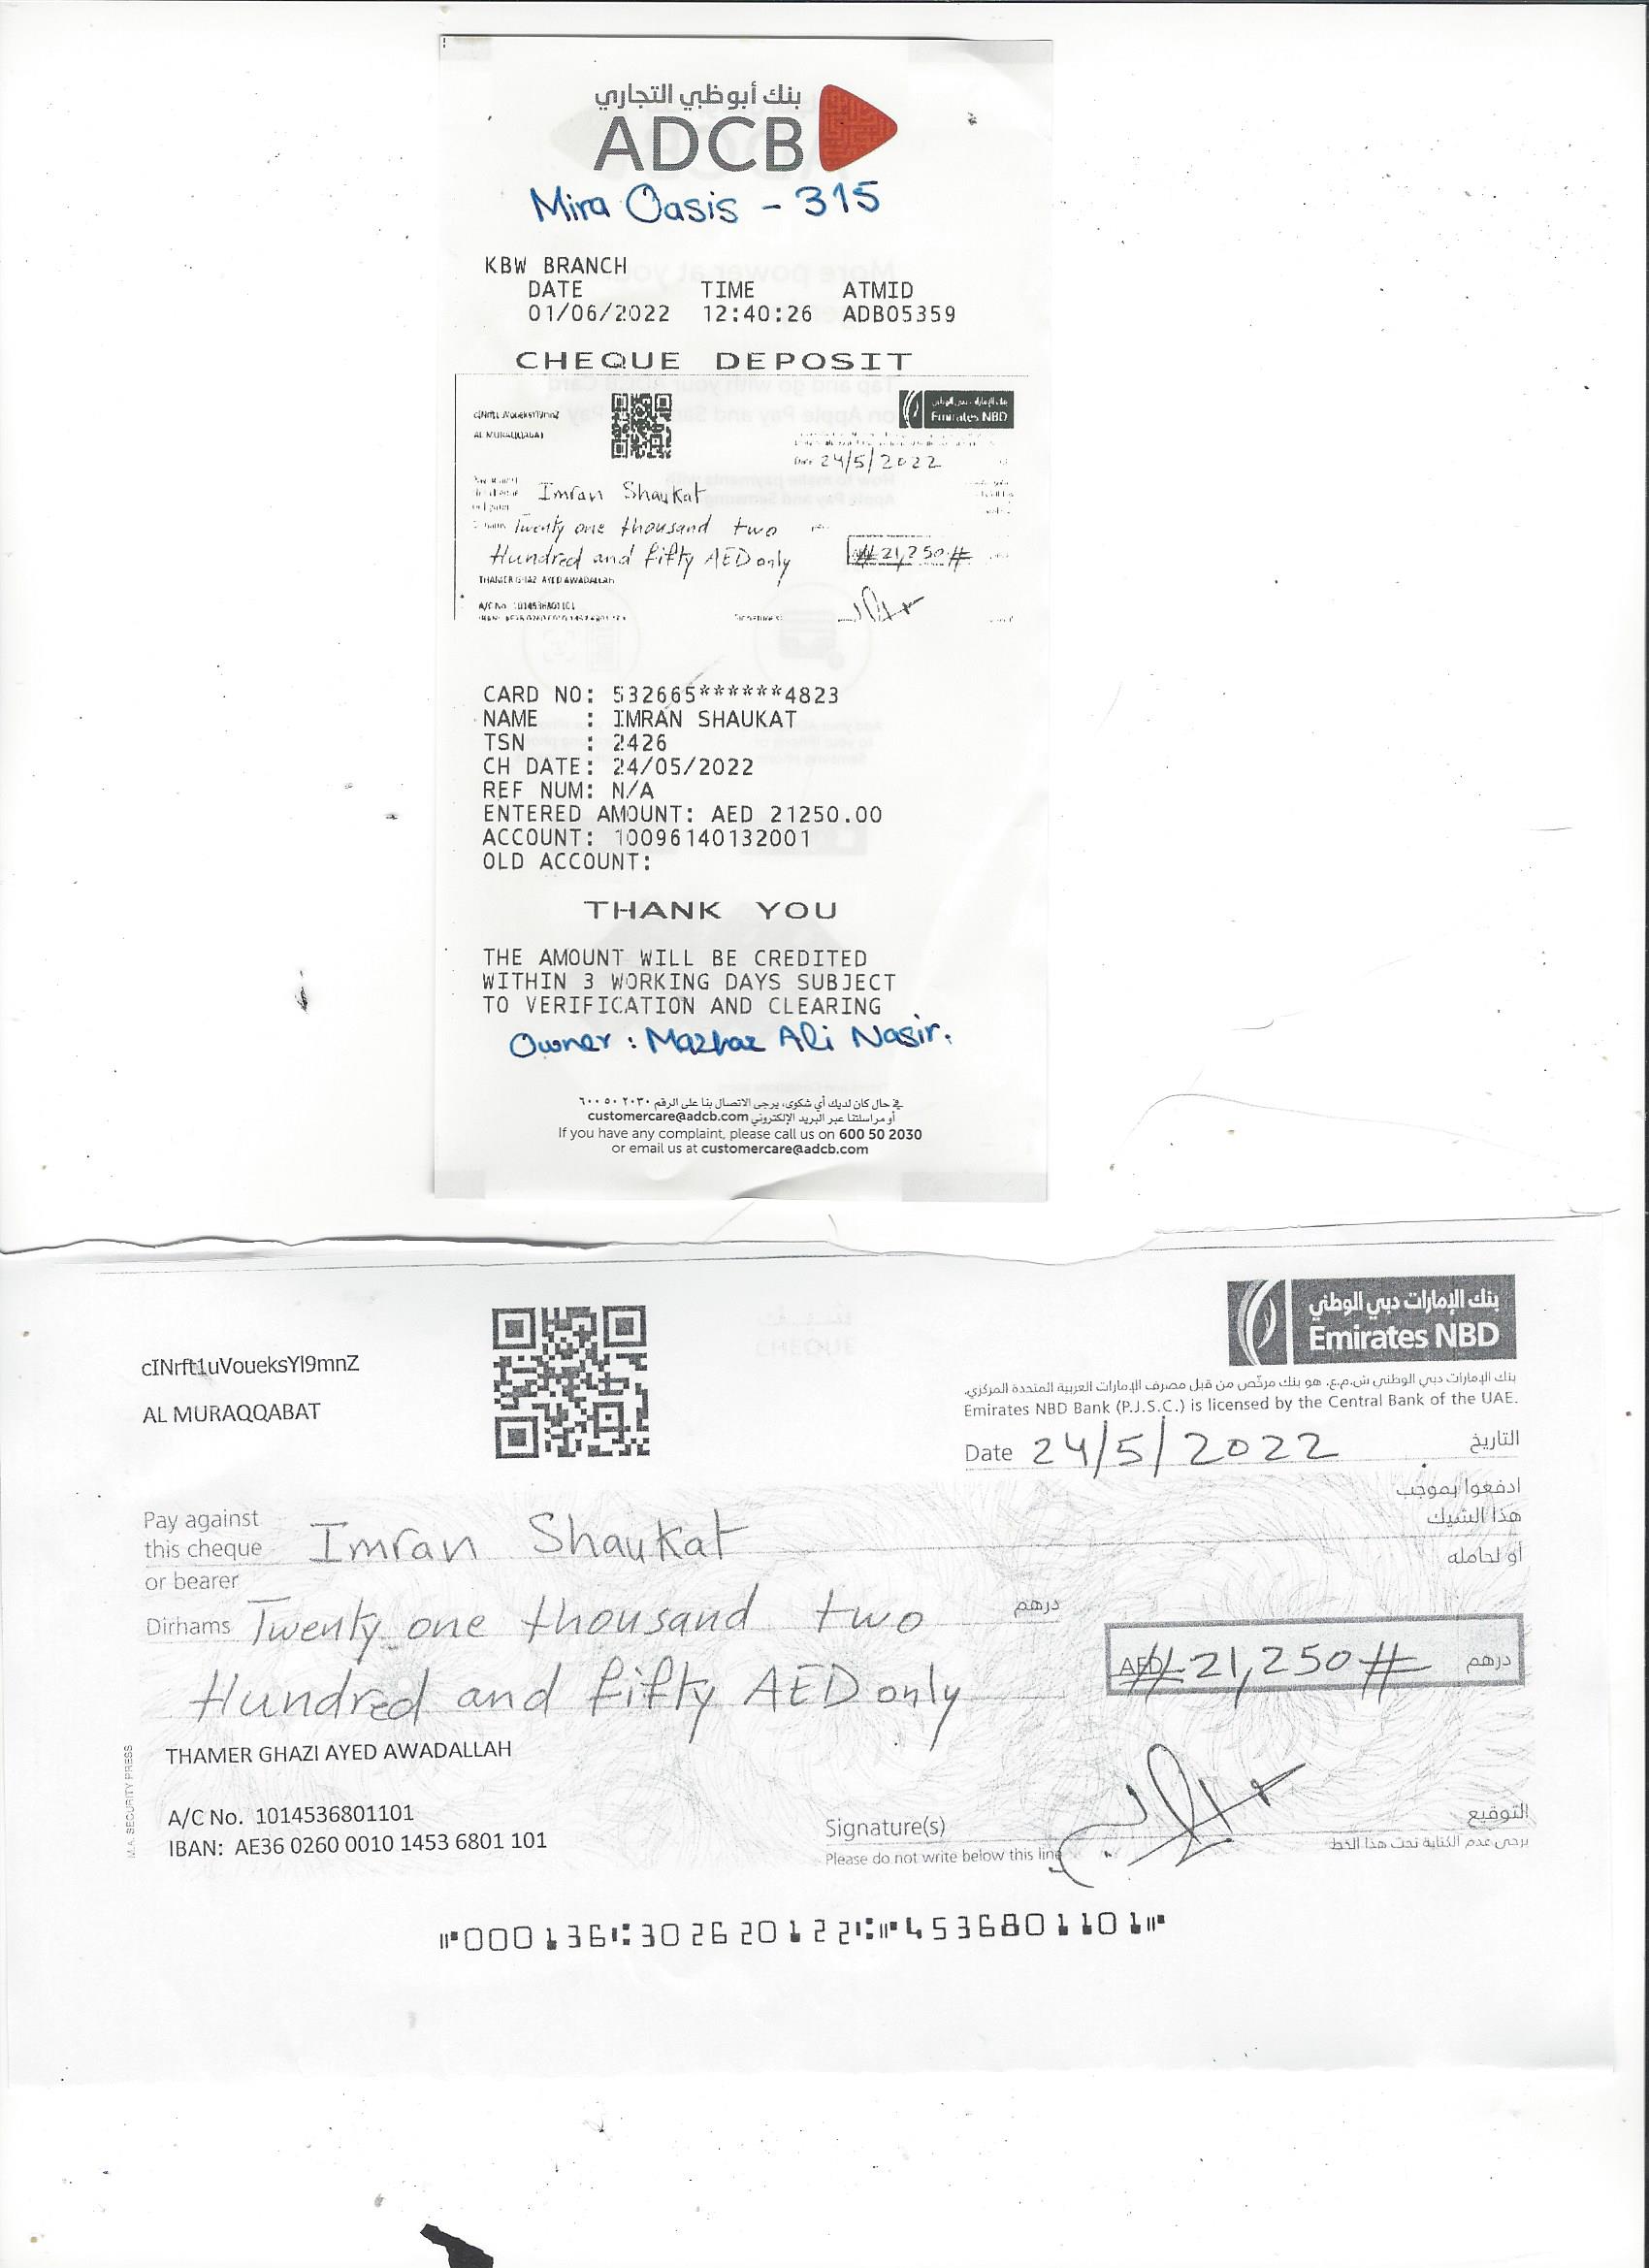 بنك أبوظبي التجاري
ADCB
Mira Oasis - 315
KBW BRANCH
DATE TIME ATMID
01/06/2022 12:40:26 ADB05359
CHEQUE DEPOSIT
بنك الإمارات دبي الوطني
Emirates NBD
AL MURAQQABAT
Date 24/5/2022
Imran Shaukat
Twenty one thousand two
Hundred and fifty AED only #21,250#
THAMER GHAZI AYED AWADALLAH
A/C No. 1014536801101
CARD NO: 532665******4823
NAME : IMRAN SHAUKAT
TSN : 2426
CH DATE: 24/05/2022
REF NUM: N/A
ENTERED AMOUNT: AED 21250.00
ACCOUNT: 10096140132001
OLD ACCOUNT:
THANK YOU
THE AMOUNT WILL BE CREDITED
WITHIN 3 WORKING DAYS SUBJECT
TO VERIFICATION AND CLEARING
Owner : Mazhar Ali Nasir.
في حال كان لديك أي شكوى، يرجى الاتصال بنا على الرقم ٢٠٣٠ ٥٠ ٦٠٠
أو مراسلتنا عبر البريد الإلكتروني customercare@adcb.com
If you have any complaint, please call us on 600 50 2030
or email us at customercare@adcb.com
بنك الإمارات دبي الوطني
Emirates NBD
cINrft1uVoueksYl9mnZ
AL MURAQQABAT
بنك الإمارات دبي الوطني ش.م.ع. هو بنك مرخّص من قبل مصرف الإمارات العربية المتحدة المركزي.
Emirates NBD Bank (P.J.S.C.) is licensed by the Central Bank of the UAE.
Date 24/5/2022 التاريخ
Pay against ادفعوا بموجب
this cheque Imran Shaukat هذا الشيك
or bearer أو لحامله
Dirhams Twenty one thousand two درهم
Hundred and fifty AED only AED #21,250# درهم
THAMER GHAZI AYED AWADALLAH
A/C No. 1014536801101
IBAN: AE36 0260 0010 1453 6801 101
Signature(s) التوقيع
Please do not write below this line يرجى عدم الكتابة تحت هذا الخط
M.A. SECURITY PRESS
⑈000136⑆302620122⑆⑈4536801101⑈